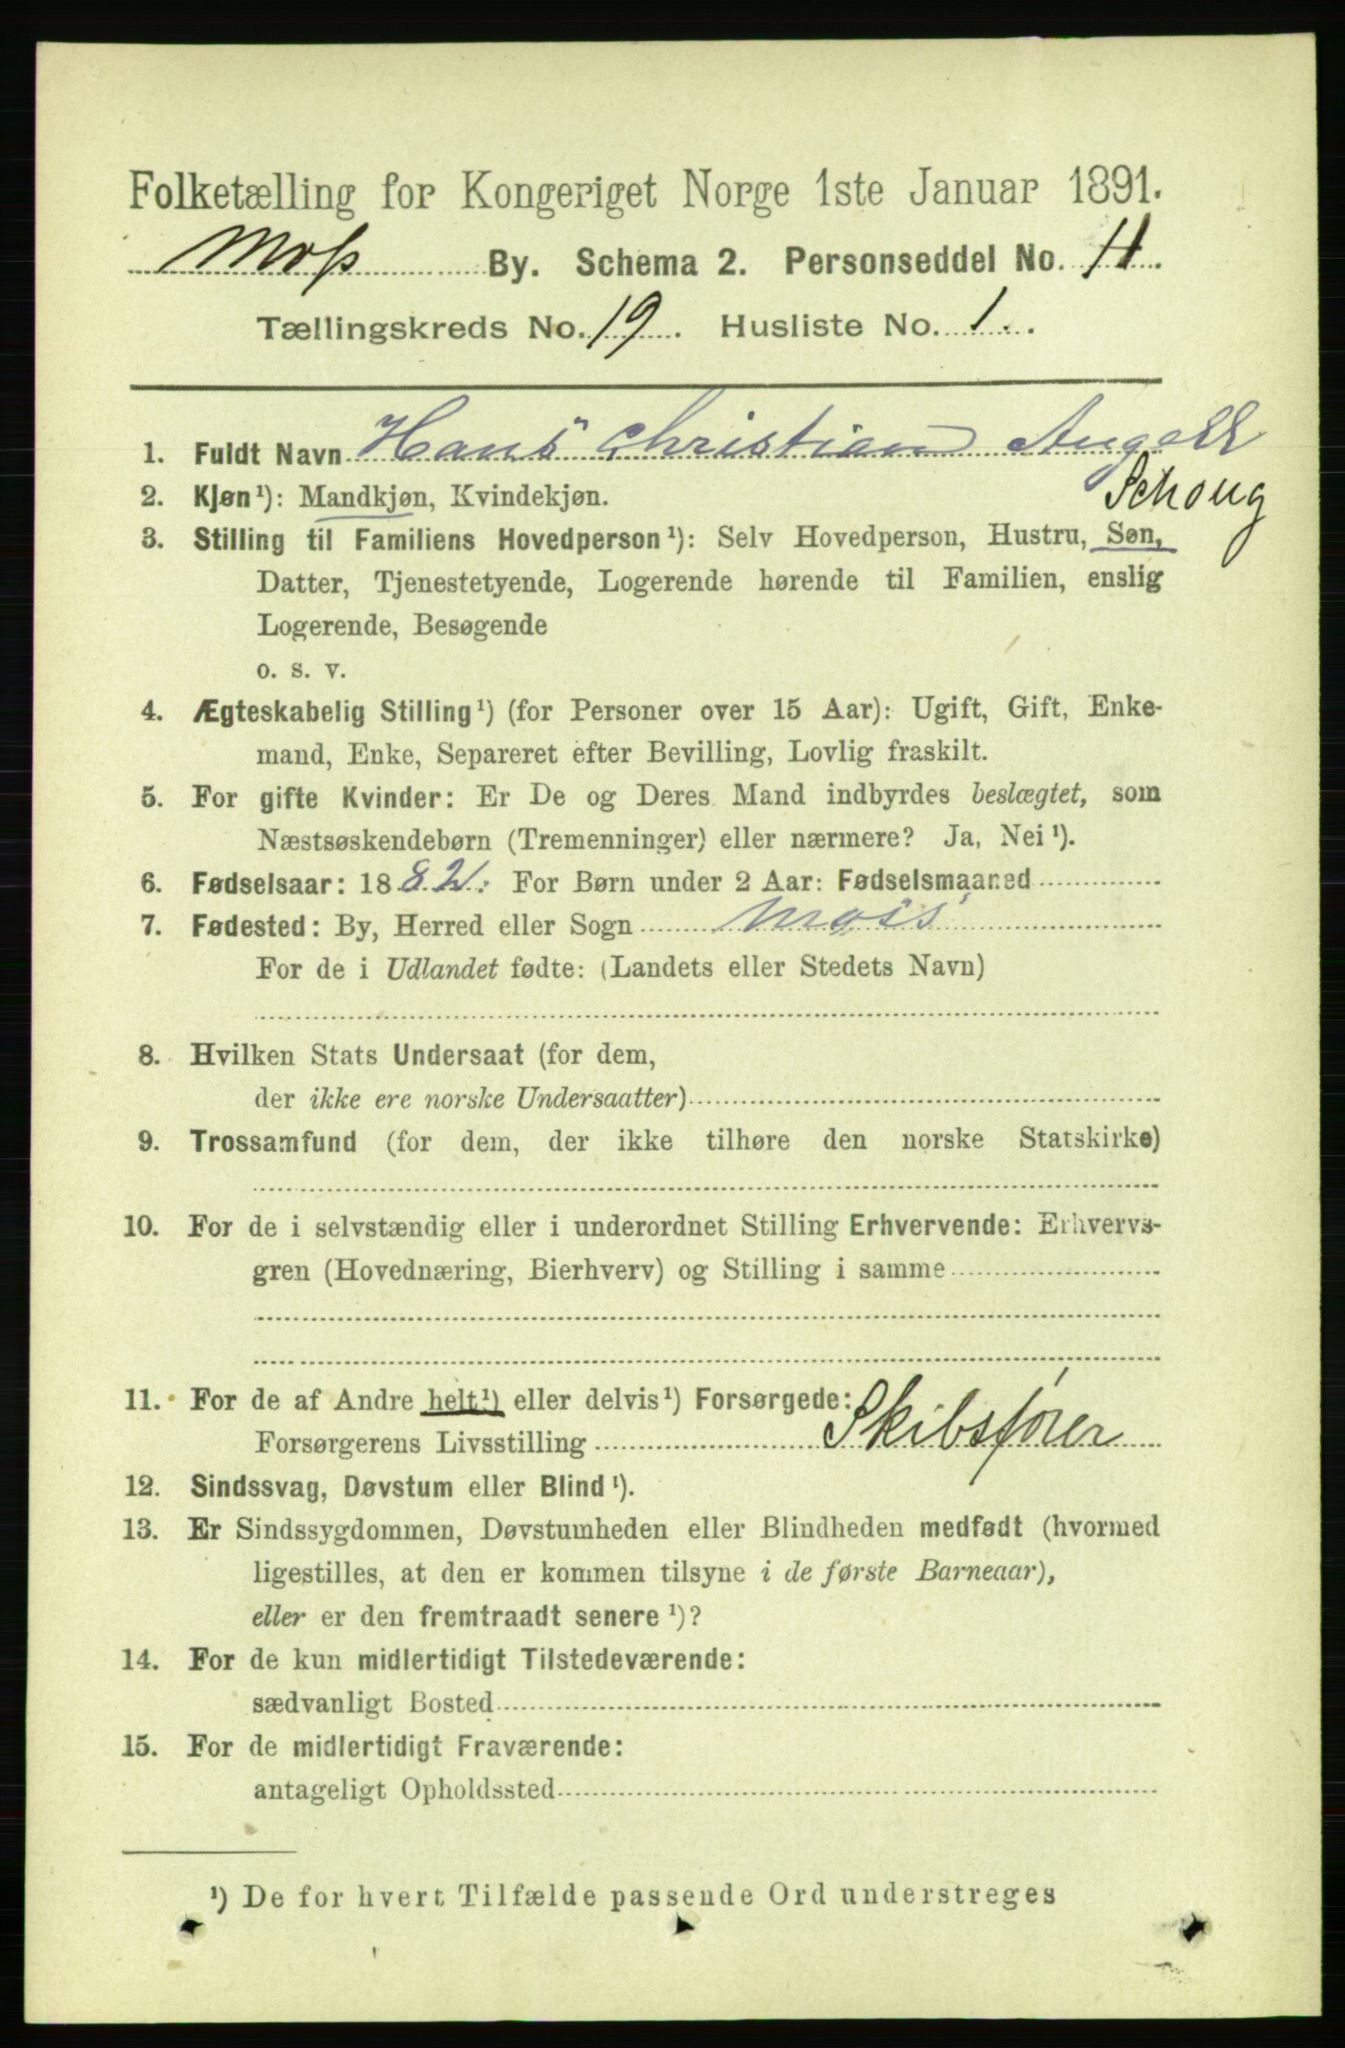 Folketælling for Kongeriget Norge 1ste Januar 1891.
Moss By. Schema 2. Personseddel No. 11.
Tællingskreds No. 19. Husliste No. 1.
1. Fuldt Navn Hans Christian Angell
Schoug
2. Kjøn¹): Mandkjøn, Kvindekjøn.
3. Stilling til Familiens Hovedperson¹): Selv Hovedperson, Hustru, Søn,
Datter, Tjenestetyende, Logerende hørende til Familien, enslig
Logerende, Besøgende
o. s. v.
4. Ægteskabelig Stilling¹) (for Personer over 15 Aar): Ugift, Gift, Enke-
mand, Enke, Separeret efter Bevilling, Lovlig fraskilt.
5. For gifte Kvinder: Er De og Deres Mand indbyrdes beslægtet, som
Næstsøskendebørn (Tremenninger) eller nærmere? Ja, Nei¹).
6. Fødselsaar: 1882. For Børn under 2 Aar: Fødselsmaaned
7. Fødested: By, Herred eller Sogn Moss
For de i Udlandet fødte: (Landets eller Stedets Navn)
8. Hvilken Stats Undersaat (for dem,
der ikke ere norske Undersaatter)
9. Trossamfund (for dem, der ikke tilhøre den norske Statskirke)
10. For de i selvstændig eller i underordnet Stilling Erhvervende: Erhvervs-
gren (Hovednæring, Bierhverv) og Stilling i samme
11. For de af Andre helt¹) eller delvis¹) Forsørgede:
Forsørgerens Livsstilling Skibsfører
12. Sindssvag, Døvstum eller Blind¹).
13. Er Sindssygdommen, Døvstumheden eller Blindheden medfødt (hvormed
ligestilles, at den er kommen tilsyne i de første Barneaar),
eller er den fremtraadt senere¹)?
14. For de kun midlertidigt Tilstedeværende:
sædvanligt Bosted
15. For de midlertidigt Fraværende:
antageligt Opholdssted
¹) De for hvert Tilfælde passende Ord understreges